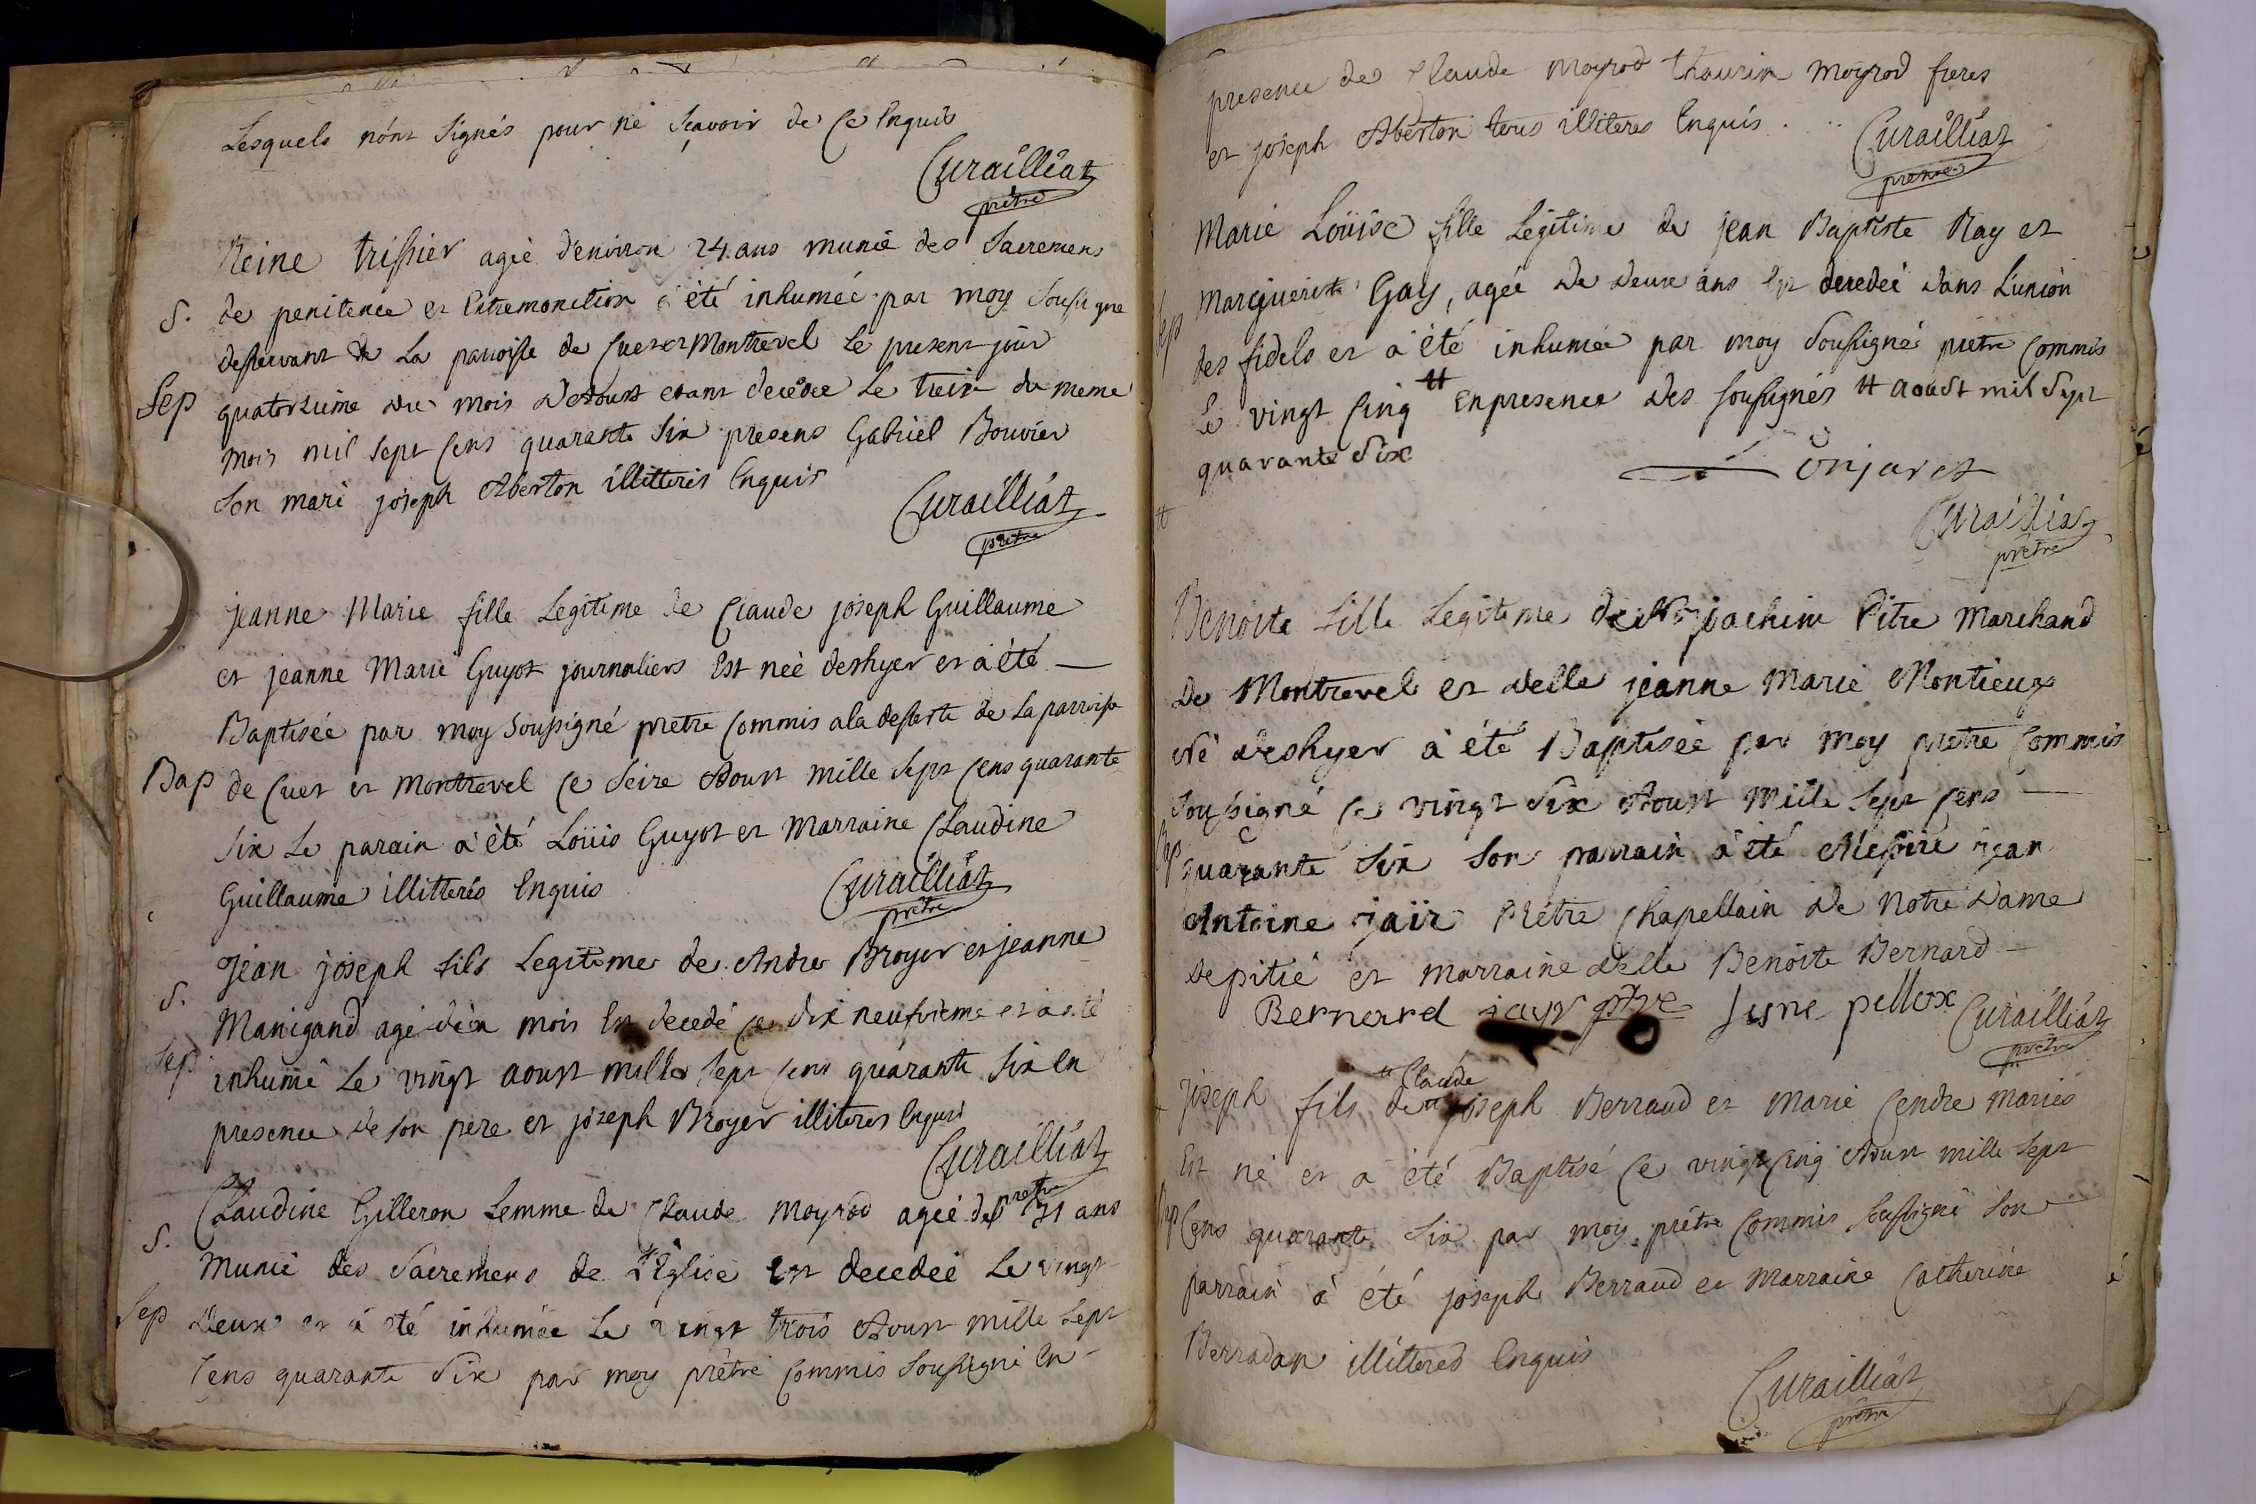 Lesquels nont signés pour né sçavoir de ce Enquis
Curailliat
prêtre
Reine trissier agée d'environ 24 ans munie des Sacremens
S. de penitence et Extremonction a été inhumée par moy Soussigné
desservant de La parroisse de Cuet et Montrevel Le present jour
Sep quatorzieme du mois D'Aoust etant decedée Le treize du meme
mois mil sept Cens quarante Six presens Gabriel Bouvier
Son mari joseph Aberton illitteres Enquis
Curailliat
prêtre
jeanne Marie fille Legitime de Claude joseph Guillaume
et jeanne Marie Guyot journaliers Est neé deshyer et à été
Baptisée par moy Soussigné pretre Commis a la desserte de La parroisse
Bap de Cuet et Montrevel Ce Seize Aoust mille Sept Cens quarante
Six Le parain a été Loüis Guyot et Marraine Claudine
Guillaume illitterés Enquis
Curailliat
prêtre
jean joseph fils Legitime de Andre Broyer et jeanne
S. Manigand agé d'un mois Est decedé Ce dix neufvieme et à eté
Sep. inhumé Le vingt aoust mille Sept Cens quarante Six En
presence de Son pere et joseph Broyer illiteres Enquis
Curailliat
prêtre
Claudine Gilleron femme de Claude Moyrod agée de 31 ans
S. Munie des Sacremens de L'Eglise Est decedeé Le vingt
Sep Deux et à été inhumée Le vingt trois Aoust mille Sept
Cens quarante Six par moy prêtre Commis Soussigné En
presence de Claude Moyrod thaurin Moyrod freres
et joseph Aberton tous illiteres Enquis
Curailliat
prêtre
Marie Loüise fille Legitime de jean Baptiste Ray et
Margueritte Gay, agée de deux ans Est decedeé dans L'union
Sep des fidels et a été inhumée par moy Soussigné prêtre Commis
Le vingt Cinq # En presence des Soussignés # aoust mil Sept
quarante Six
Conjaret
#
Curailliat
prêtre
Benoite fille Legitime de joachim Pitre Marchand
De Montrevel et delle jeanne Marie Montieux
Né deshyer à été Baptisée par moy prêtre Commis
Soussigné Ce vingt Six Aoust Mille Sept Cens
Bap quarante Six Son parrain a été Messire jean
Antoine jaïr Prêtre Chapellain de Notre Dame
De pitié et Marraine delle Benoite Bernard
Bernard jayr ptre pellux Curailliat
prêtre
" Claude
joseph fils de " joseph Berraud et Marie Cendre Mariés
Est né et a été Baptisé Ce vingt Cinq Aoust mille Sept
Bap Cens quarante Six par moy prêtre Commis Soussigné Son
parrain à été joseph Berraud et Marraine Catherine
Berradan illitteres Enquis
Curailliat
prêtre